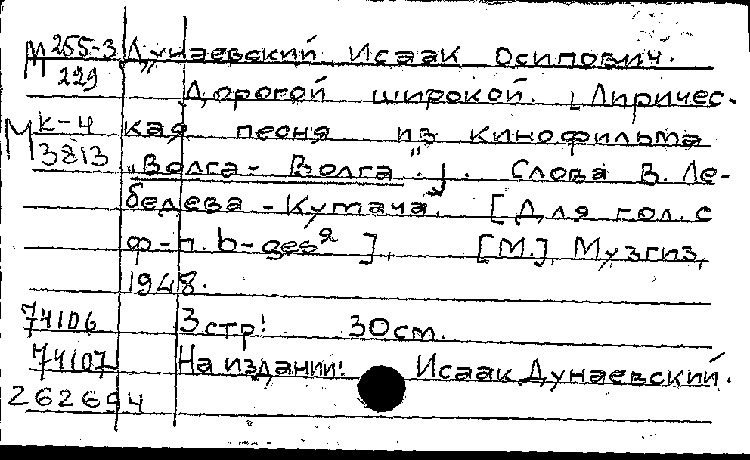 М 255-3 Дунаевский Исаак Осипович.
229 Дорогой широкой. [Лиричес-
М К-4 кая песня из кинофильма
3813 „Волга-Волга"]. Слова В. Ле-
бедева-Кумача. [Для гол. с
ф-п. b-ges² ]. [М.], Музгиз,
1948.
74106 3 стр. 30 см.
74107 На издании: Исаак Дунаевский.
262694